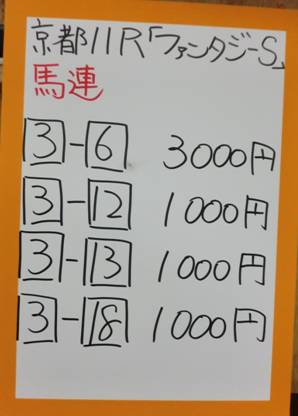 京都11R「ファンタジーS」
馬連
3-6 3000円
3-12 1000円
3-13 1000円
3-18 1000円